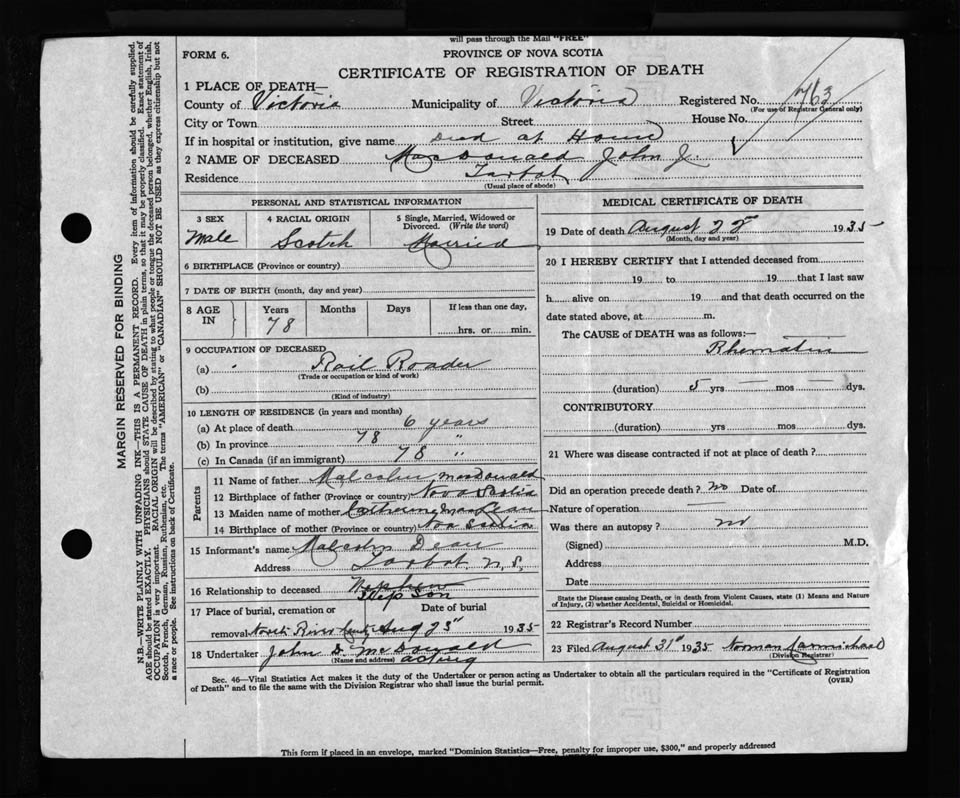 will pass through the Mail "FREE"
FORM 6.
PROVINCE OF NOVA SCOTIA
CERTIFICATE OF REGISTRATION OF DEATH
1 PLACE OF DEATH—
County of Victoria Municipality of Victoria Registered No. 763
(For use of Registrar General only)
City or Town Street House No.
If in hospital or institution, give name Died at Home
2 NAME OF DECEASED MacDonald John J.
Residence Tarbot
(Usual place of abode)
PERSONAL AND STATISTICAL INFORMATION
3 SEX 4 RACIAL ORIGIN 5 Single, Married, Widowed or Divorced. (Write the word)
Male Scotch Married
6 BIRTHPLACE (Province or country)
7 DATE OF BIRTH (month, day and year)
8 AGE IN Years Months Days If less than one day,
78 hrs. or min.
9 OCCUPATION OF DECEASED
(a) Rail Roader
(Trade or occupation or kind of work)
(b)
(Kind of industry)
10 LENGTH OF RESIDENCE (in years and months)
(a) At place of death 6 years
(b) In province 78 "
(c) In Canada (if an immigrant) 78 "
Parents
11 Name of father Malcolm MacDonald
12 Birthplace of father (Province or country) Nova Scotia
13 Maiden name of mother Catherine MacLean
14 Birthplace of mother (Province or country) Nova Scotia
15 Informant's name Malcolm Dean
Address Tarbot N.S.
16 Relationship to deceased Nephew
Step Son
17 Place of burial, cremation or Date of burial
removal North River Aug 25" 1935
18 Undertaker John D. McDonald
(Name and address) acting
MEDICAL CERTIFICATE OF DEATH
19 Date of death August 22 1935
(Month, day and year)
20 I HEREBY CERTIFY that I attended deceased from
19 to 19 that I last saw
h alive on 19 and that death occurred on the
date stated above, at m.
The CAUSE of DEATH was as follows:—
(duration) 5 yrs — mos — dys.
CONTRIBUTORY
(duration) yrs mos dys.
21 Where was disease contracted if not at place of death?
Did an operation precede death? no Date of
Nature of operation —
Was there an autopsy? no
(Signed) M.D.
Address
Date
State the Disease causing Death, or in death from Violent Causes, state (1) Means and Nature
of Injury, (2) whether Accidental, Suicidal or Homicidal.
22 Registrar's Record Number
23 Filed August 31st 1935 Norman Carmichael
(Division Registrar)
Sec. 46—Vital Statistics Act makes it the duty of the Undertaker or person acting as Undertaker to obtain all the particulars required in the "Certificate of Registration
of Death" and to file the same with the Division Registrar who shall issue the burial permit.
(OVER)
This form if placed in an envelope, marked "Dominion Statistics—Free, penalty for improper use, $300," and properly addressed
MARGIN RESERVED FOR BINDING
N.B.—WRITE PLAINLY WITH UNFADING INK—THIS IS A PERMANENT RECORD. Every item of information should be carefully supplied.
AGE should be stated EXACTLY. PHYSICIANS should STATE CAUSE OF DEATH in plain terms, so that it may be properly classified. Exact statement of
OCCUPATION is very important. RACIAL ORIGIN will be described by stating to what people or tongue the deceased person belonged, whether English, Irish,
Scotch, French, German, Russian, Ruthenian, etc. The terms "AMERICAN" or "CANADIAN" SHOULD NOT BE USED as they express citizenship but not
a race or people. See instructions on back of Certificate.